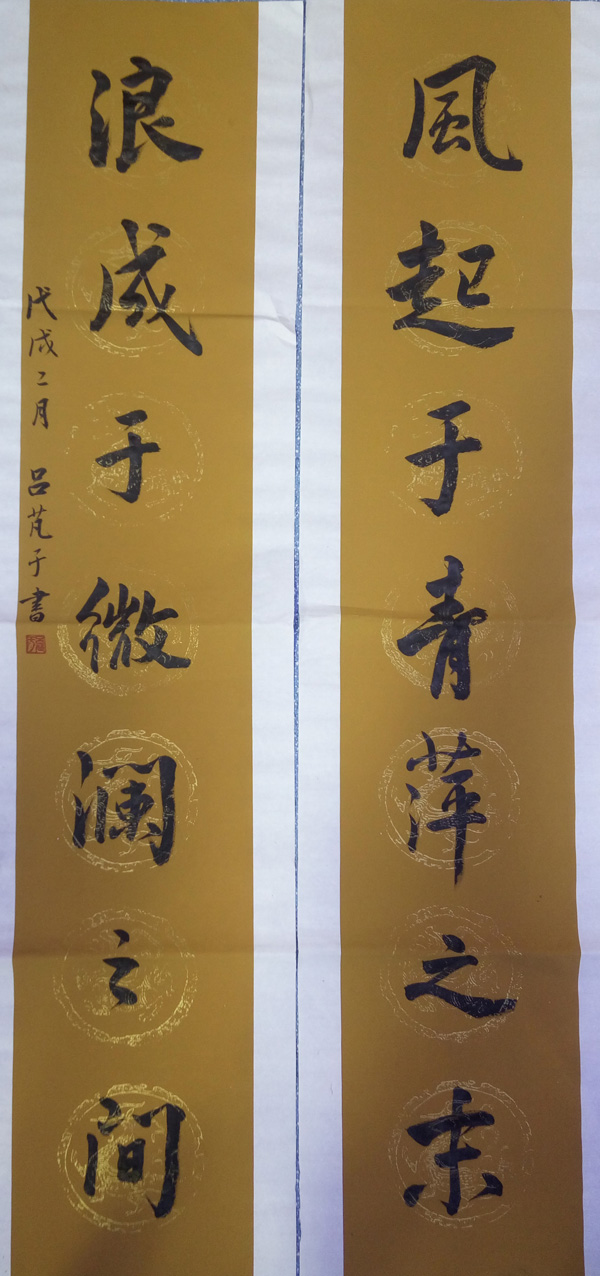 風起于青萍之末
浪成于微澜之间
戊戌二月 吕芃于书